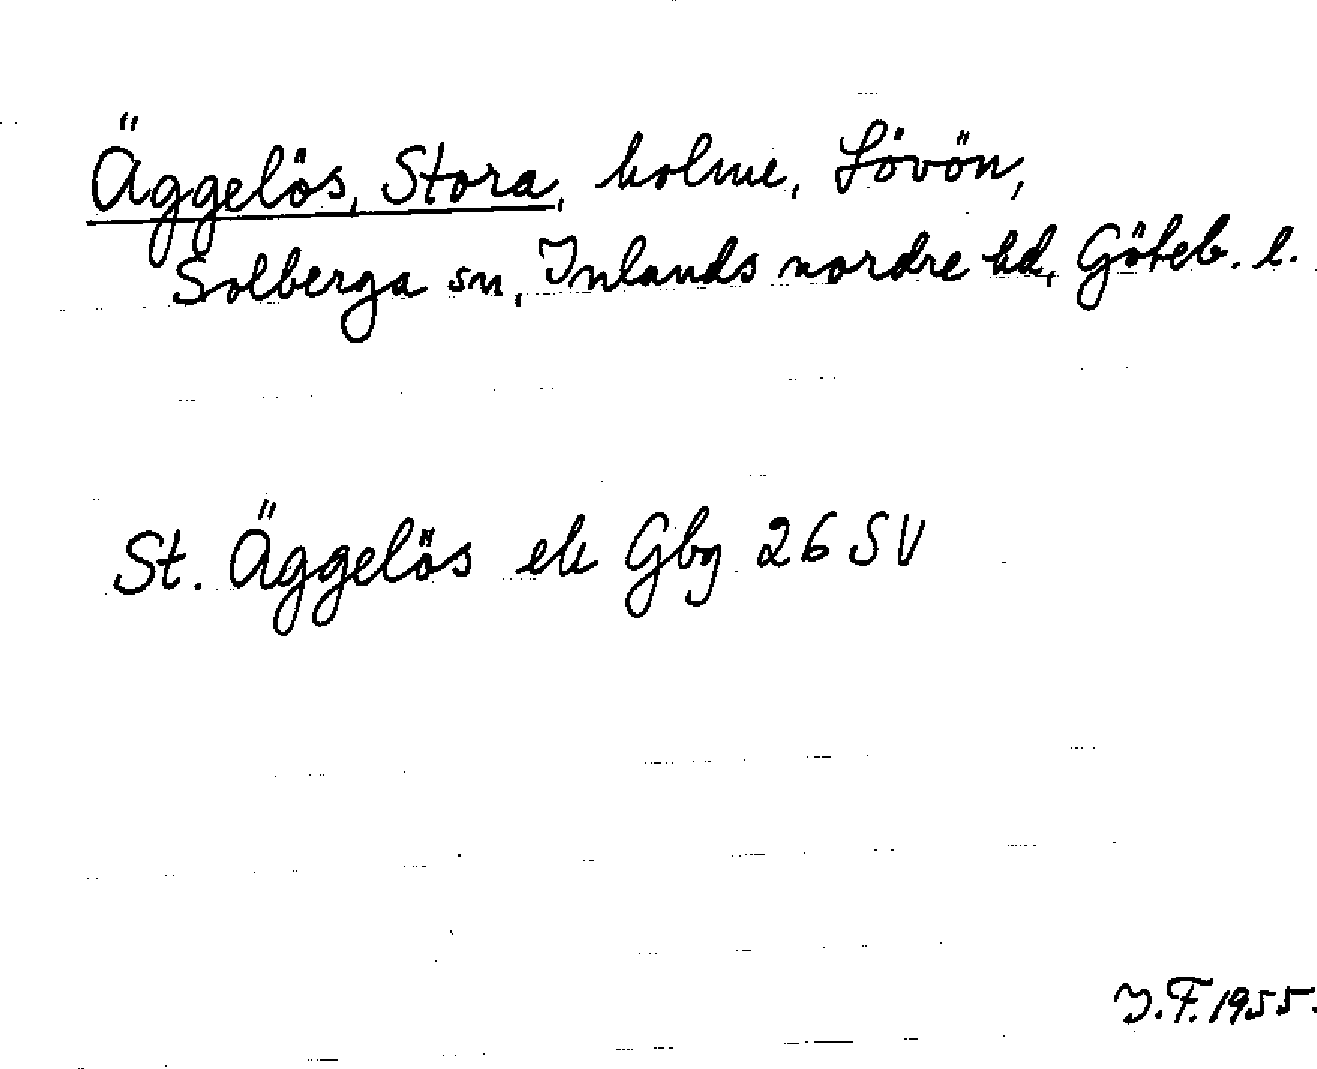 Äggelös, Stora, holme, Lövön,
Solberga sn, Inlands nordre hd, Göteb. l.
St. Äggelös ek Gbg 26 SV
I.F. 1955.